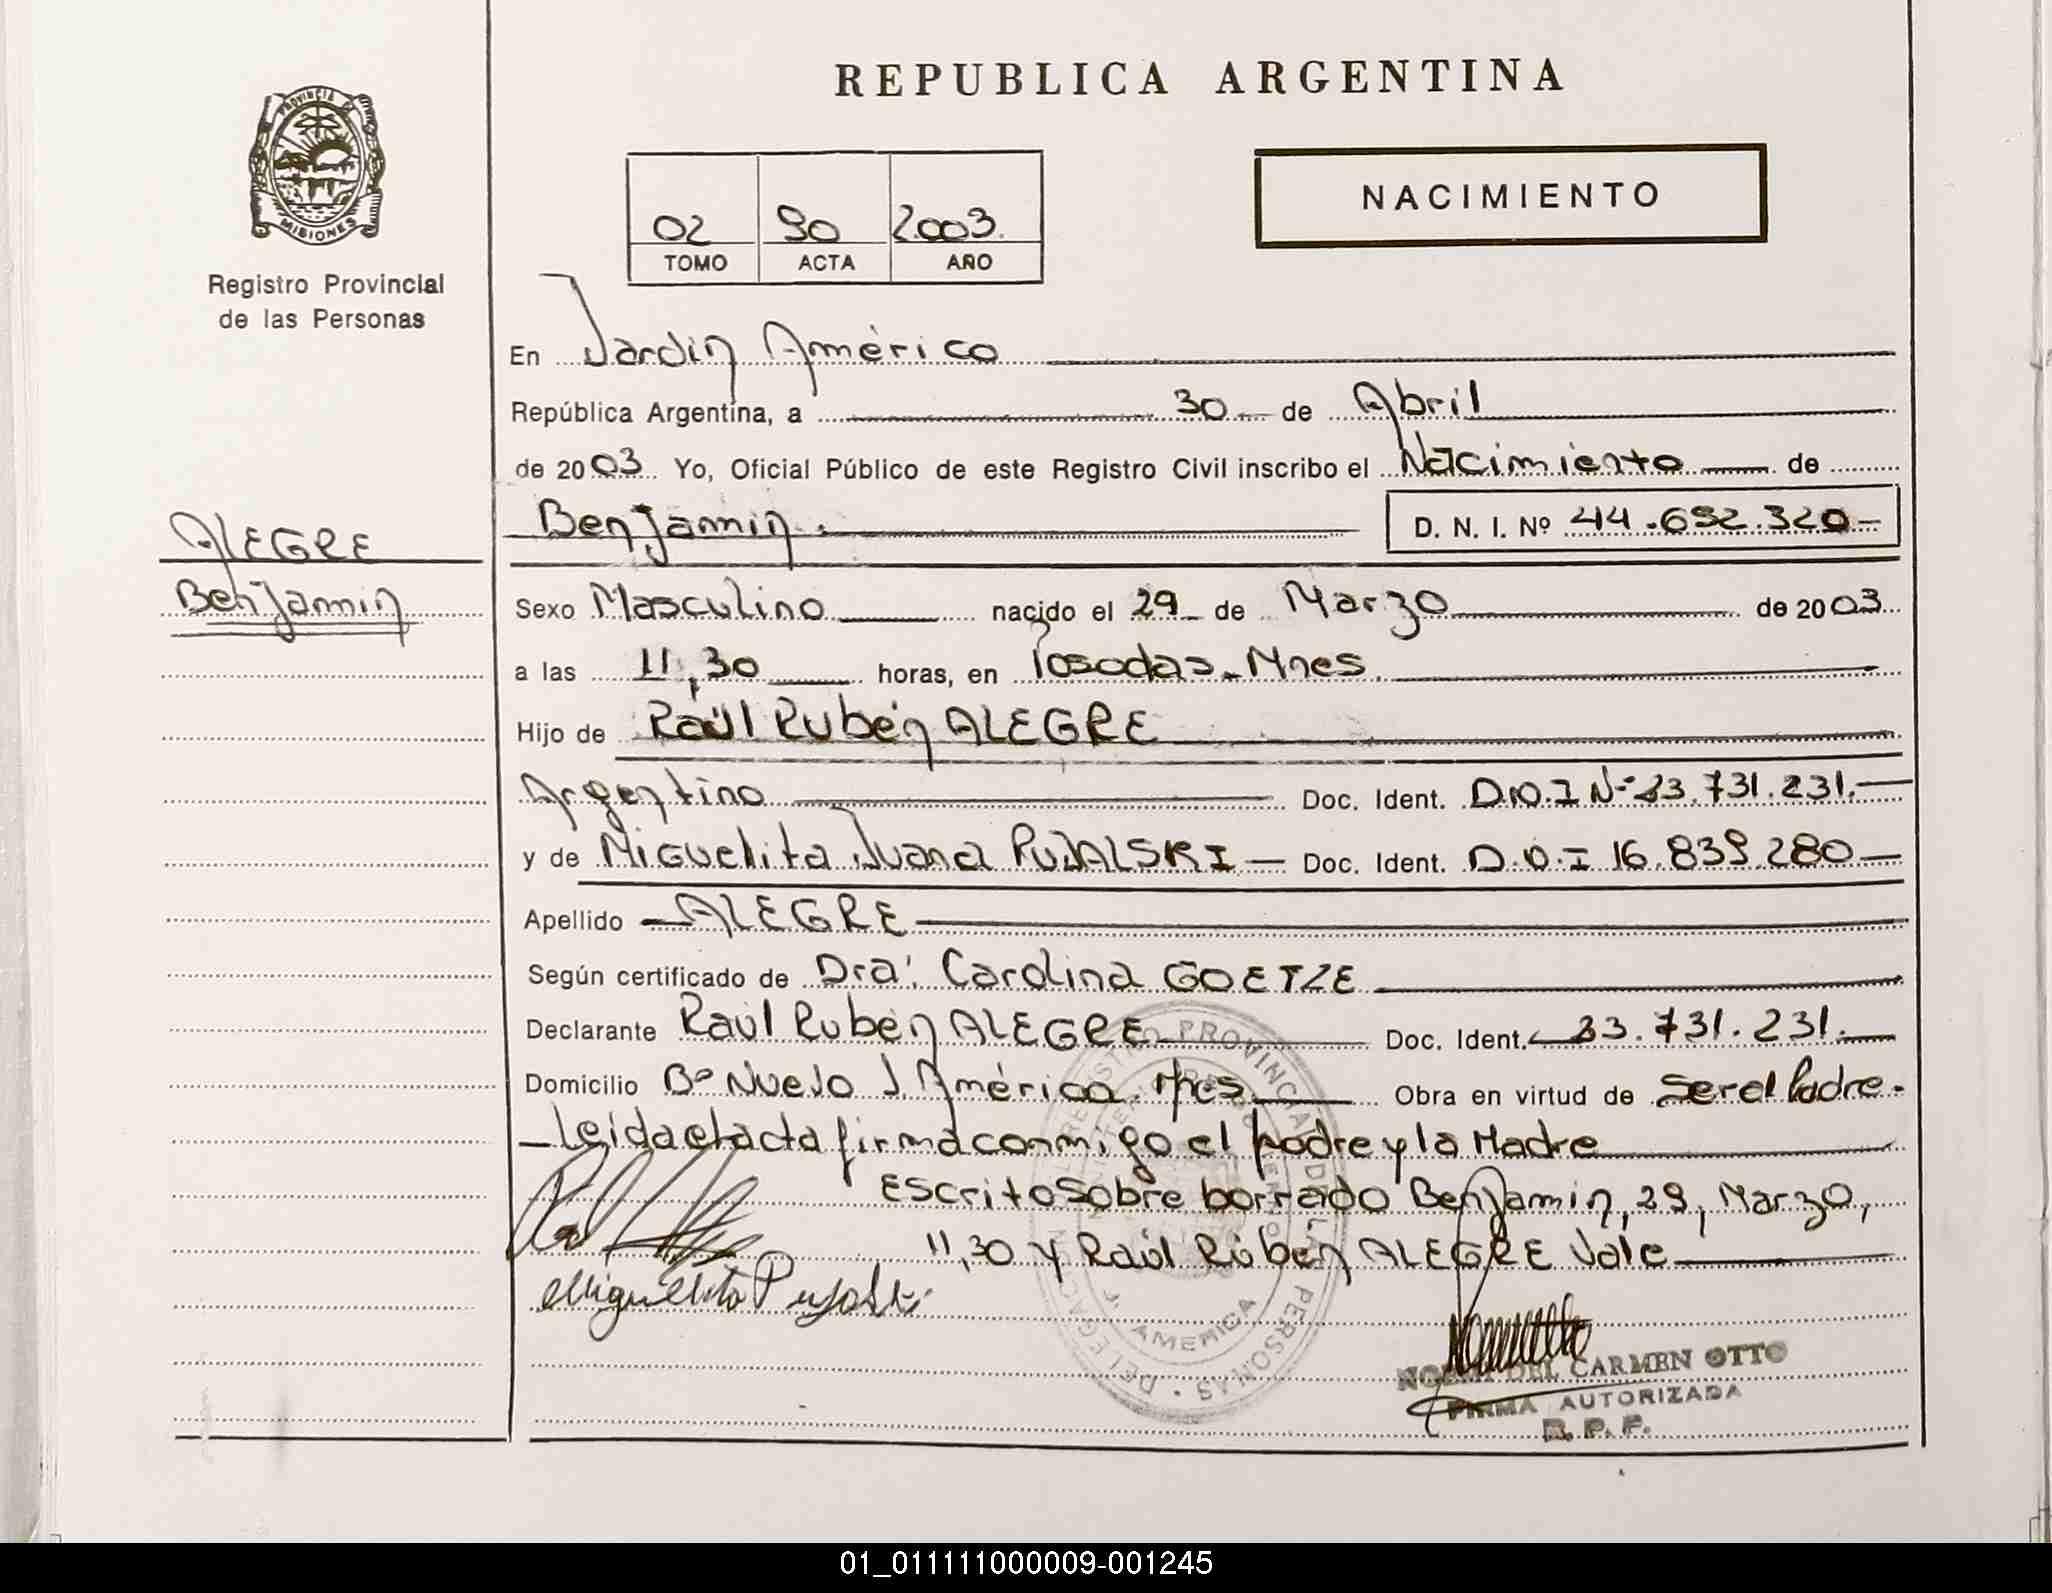 REPUBLICA ARGENTINA
PROVINCIA DE
MISIONES
Registro Provincial
de las Personas
NACIMIENTO
02 90 2.003.
TOMO ACTA AÑO
En Jardín América
República Argentina, a 30 de Abril
de 2003 Yo, Oficial Público de este Registro Civil inscribo el Nacimiento de
Benjamín.
D. N. I. Nº 44.692.320-
ALEGRE
Benjamín
Sexo Masculino nacido el 29 de Marzo de 2003
a las 11,30 horas, en Posadas-Mnes.
Hijo de Raúl Rubén ALEGRE
Argentino Doc. Ident. D.N.I Nº 23.731.231.-
y de Miguelita Juana PUJALSKI - Doc. Ident. D.N.I 16.839.280-
Apellido - ALEGRE
Según certificado de Dra: Carolina GOETZE
Declarante Raúl Rubén ALEGRE Doc. Ident. 23.731.231.-
Domicilio Bº Nuevo J. América. Mnes Obra en virtud de ser el Padre.-
- Leida el acta firma conmigo el padre y la Madre
Escrito sobre borrado Benjamín, 29, Marzo,
11,30 y Raúl Rubén ALEGRE Vale
Miguelita Pujalski
REGISTRO PROVINCIAL DE LAS PERSONAS · DELEGACION
J. AMERICA
NOEMI DEL CARMEN OTTO
FIRMA AUTORIZADA
R. P. P.
01_011111000009-001245